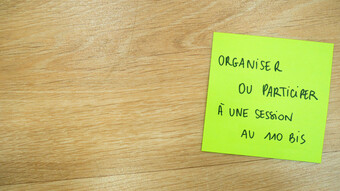 ORGANISER
OU PARTICIPER
À UNE SESSION
AU 110 BIS